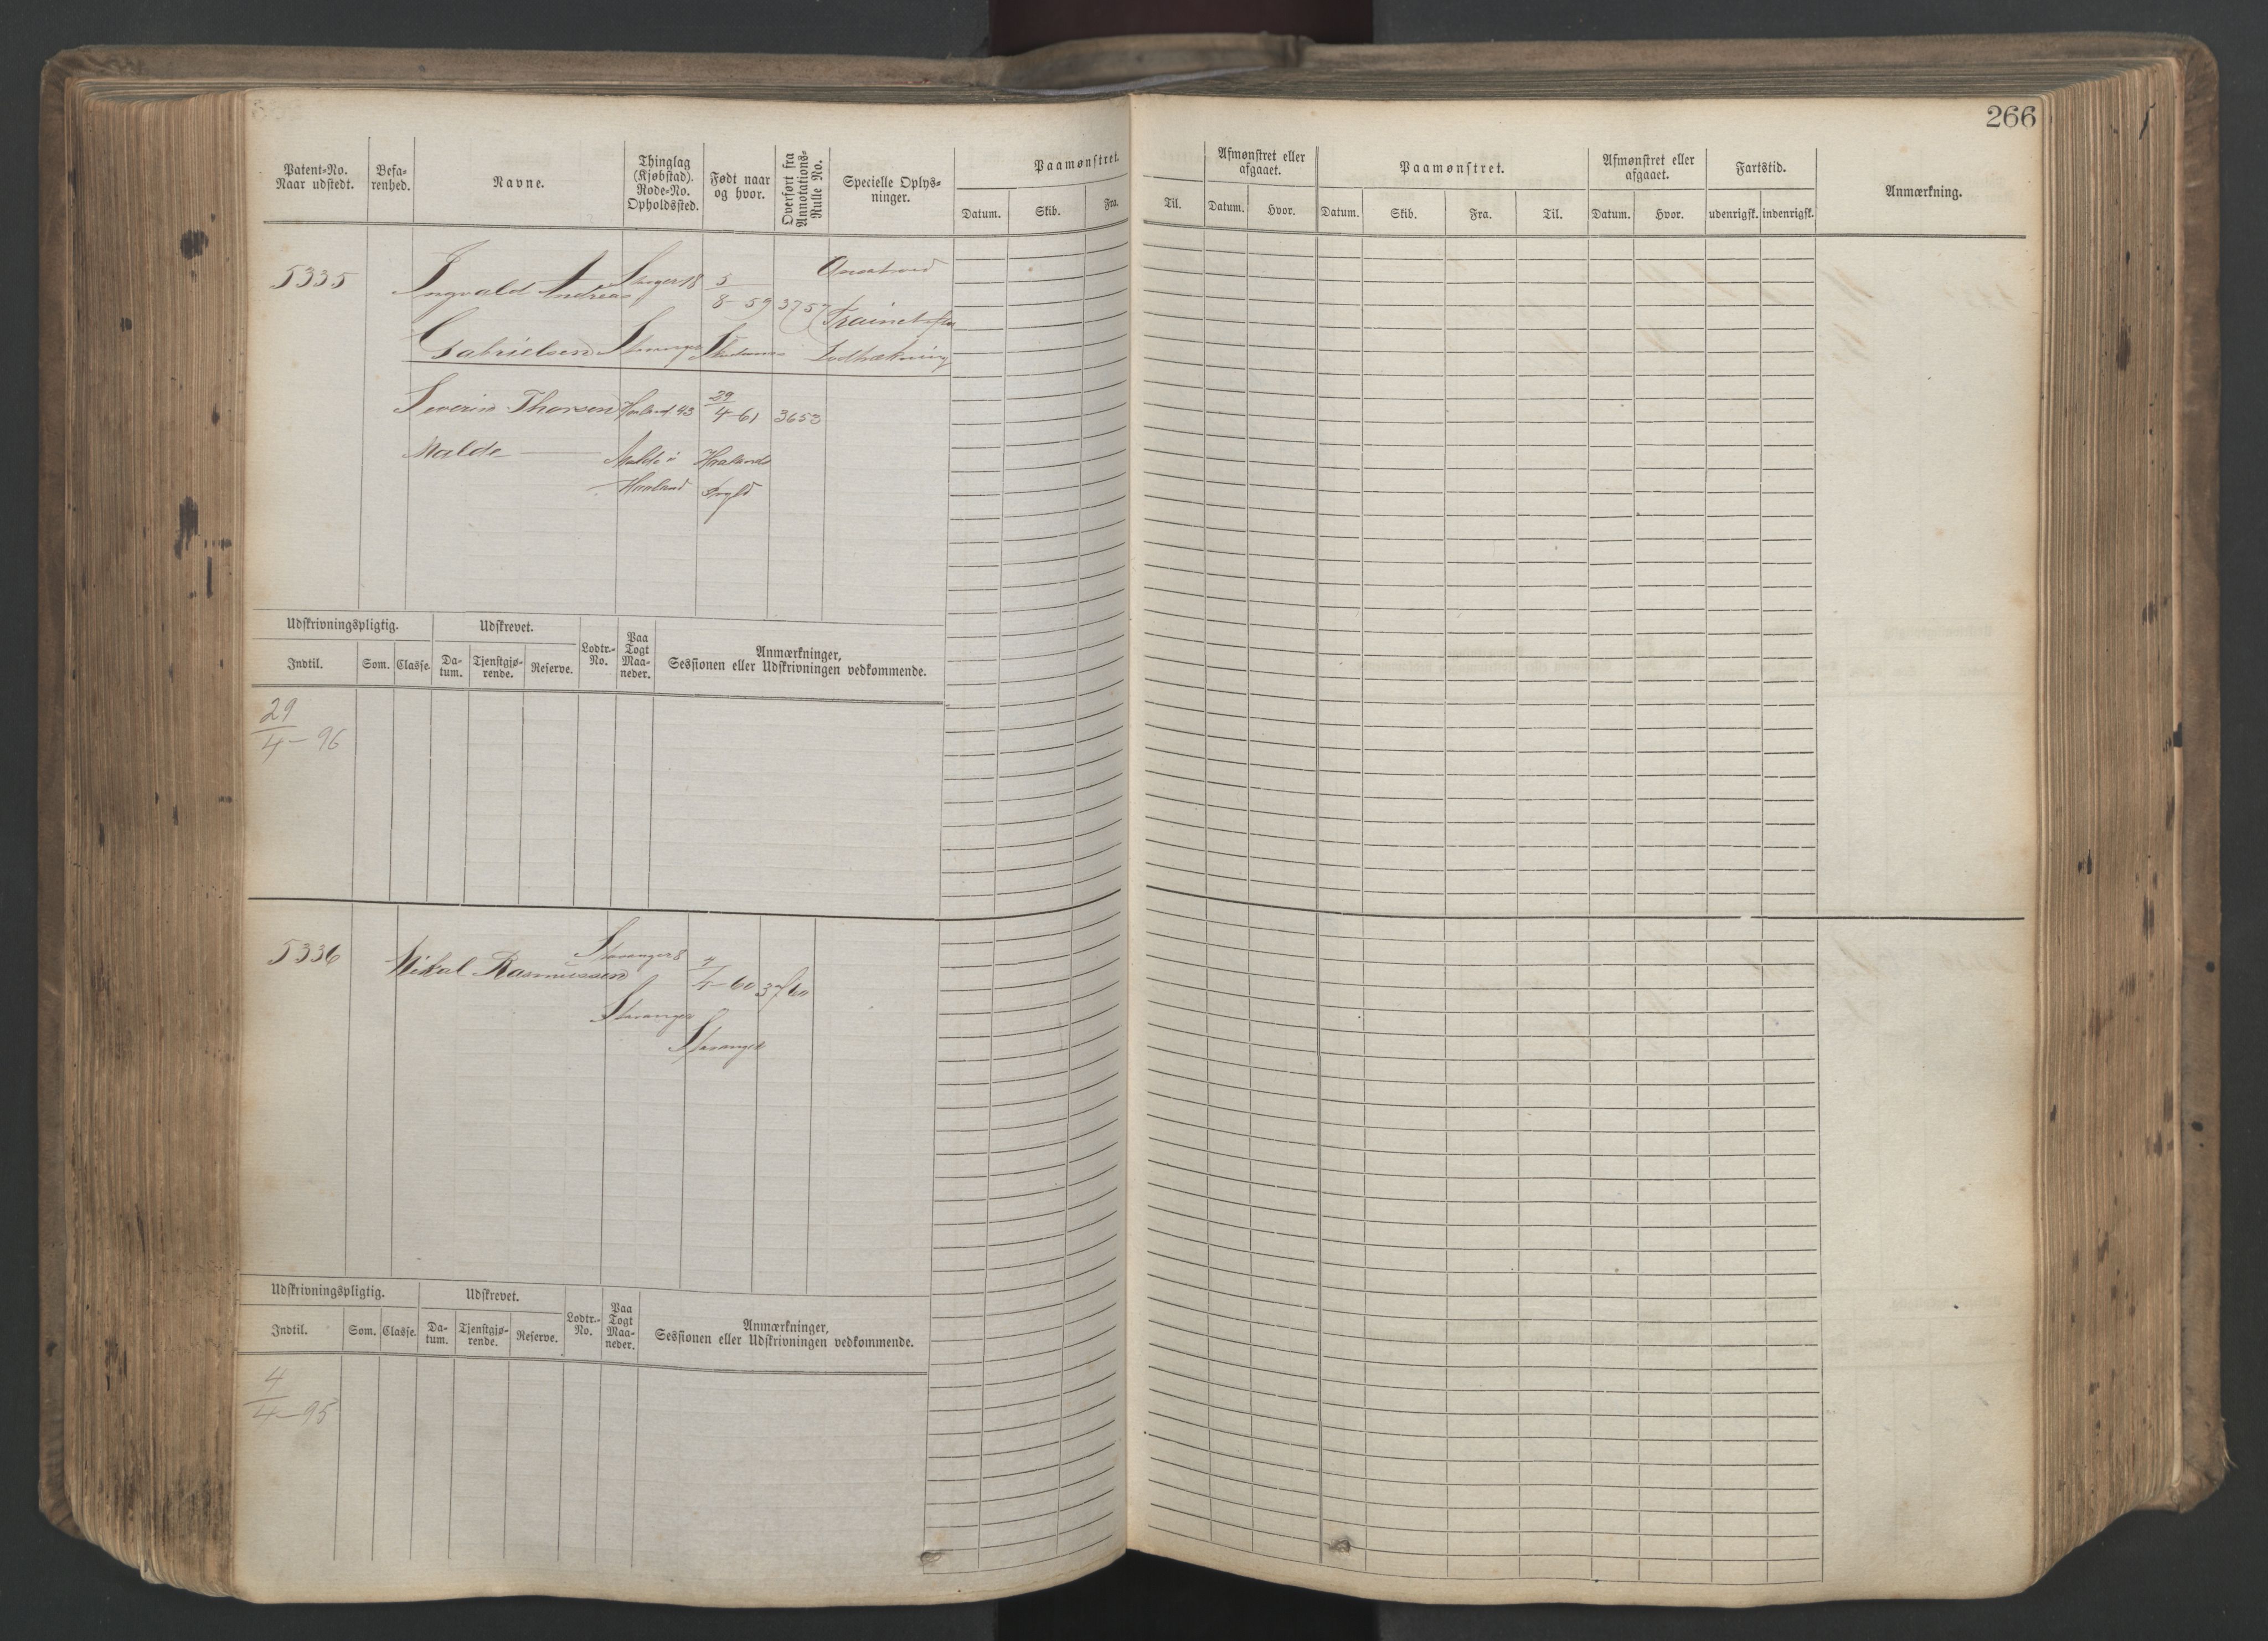 266
Patent-No.
Naar udstedt.
Befa-
renhed.
Navne.
Thinglag
(Kjøbstad).
Rode-No.
Opholdssted.
Født naar
og hvor.
Overført fra
Annotations-
Rulle No.
Specielle Oplys-
ninger.
Paamønstret.
Datum.
Skib.
Fra.
Til.
Afmønstret eller
afgaaet.
Datum.
Hvor.
Paamønstret.
Datum.
Skib.
Fra.
Til.
Afmønstret eller
afgaaet.
Datum.
Hvor.
Fartstid.
udenrigsk.
indenrigsk.
Anmærkning.
5335
Ingvald Andreas
Gabrielsen
5
8-59
3757
Severin Thorsen
Malde
Haaland 93
Malde i
Haaland
29
4-61
Haalands
3653
Udskrivningspligtig.
Indtil.
Som.
Classe.
Udskrevet.
Da-
tum.
Tjenstgjø-
rende.
Reserve.
Lodtr.-
No.
Paa
Togt
Maa-
neder.
Anmærkninger,
Sessionen eller Udskrivningen vedkommende.
29
4-96
5336
Mikal Rasmussen
Stavanger 8
Stavanger
4
4-60
Stavanger
3760
Udskrivningspligtig.
Indtil.
Som.
Classe.
Udskrevet.
Da-
tum.
Tjenstgjø-
rende.
Reserve.
Lodtr.-
No.
Paa
Togt
Maa-
neder.
Anmærkninger,
Sessionen eller Udskrivningen vedkommende.
4
4-95